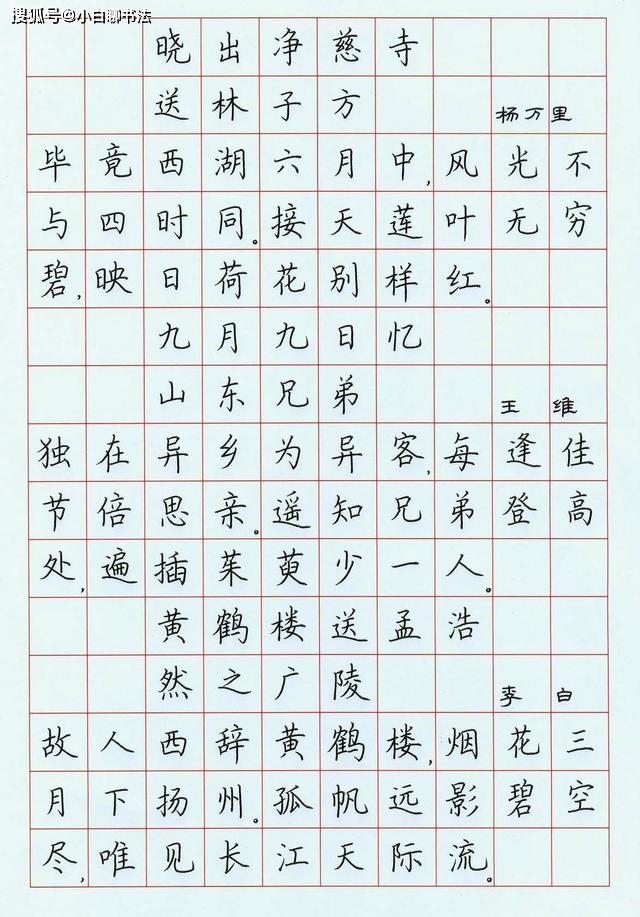 搜狐号@小白聊书法
晓出净慈寺
送林子方 杨万里
毕竟西湖六月中,风光不
与四时同。接天莲叶无穷
碧,映日荷花别样红。
九月九日忆
山东兄弟 王维
独在异乡为异客,每逢佳
节倍思亲。遥知兄弟登高
处,遍插茱萸少一人。
黄鹤楼送孟浩
然之广陵 李白
故人西辞黄鹤楼,烟花三
月下扬州。孤帆远影碧空
尽,唯见长江天际流。